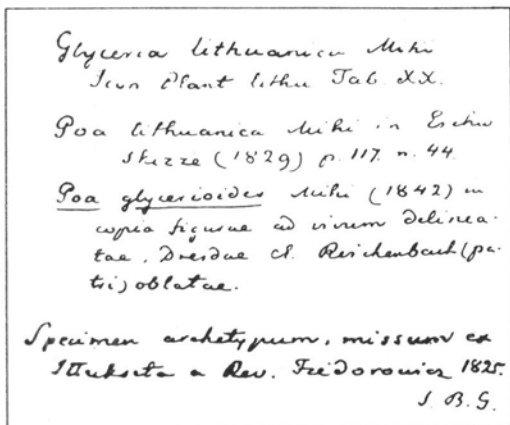 Glyceria lithuanica mihi
Icon Plant lithu Tab. XX.
Poa lithuanica mihi in Eichw
Skizze (1829) p. 117. n. 44.
Poa glycerioides mihi (1842) in
copia figurae ad vivum delinea-
tae, Dresdae cl. Reichenbach (pa-
tri) oblatae.
Specimen archetypum, missum ex
Illukszta a Rev. Fiedorowicz 1825.
J. B. G.